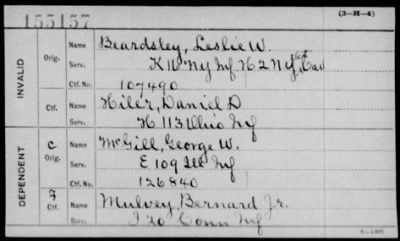 155157
(3-H-4)
INVALID
Orig.
Name Beardsley, Leslie W.
Serv. K 11 NY Inf H 2 NY Cav
Ctf. No. 107490
Ctf.
Name Hiler, Daniel D
Serv. H 113 Ohio Inf
DEPENDENT
C
Orig.
Name McGill, George W.
Serv. E 109 Ill Inf
Ctf. No. 126840
7
Ctf.
Name Mulvey, Bernard Jr.
Serv. I 20 Conn Inf